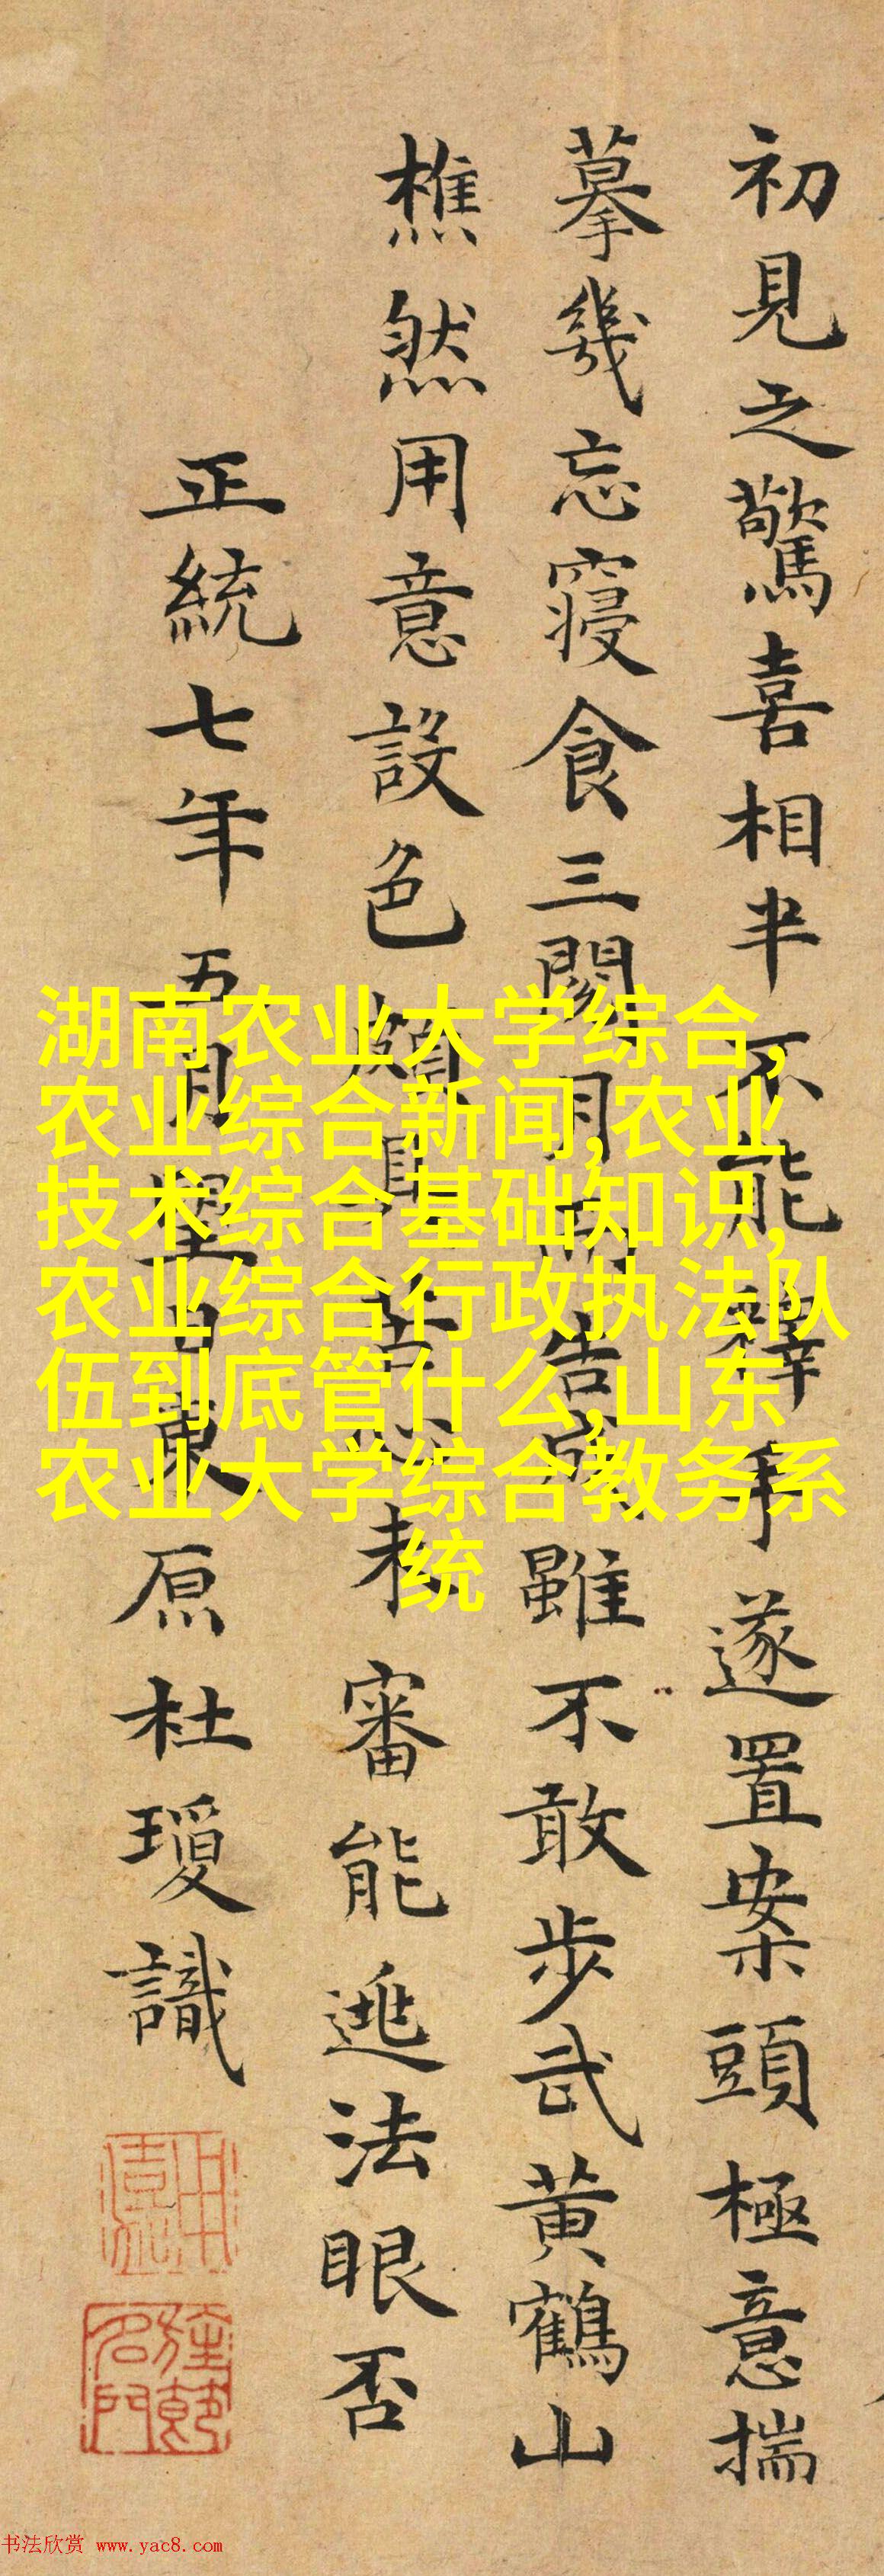 初見之驚喜相半不能釋手遂置案頭極意揣
摹幾忘寢食三閱月而告成雖不敢步武黃鶴山
樵然用意設色頗苦心未審能逃法眼否
正統七年五月望日東原杜瓊識
湖南农业大学综合,
农业综合新闻,农业
技术综合基础知识,
农业综合行政执法队
伍到底管什么,山东
农业大学综合教务系
统
书法欣赏 www.yac8.com